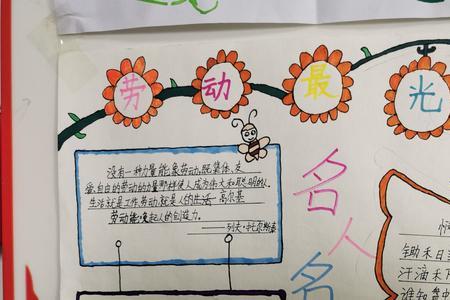 劳动最光
没有一种力量能象劳动,既集体、友
爱、自由的劳动的力量那样使人成为伟大和聪明的人。
生活就是工作,劳动,就是人的生活 高尔基
劳动能唤起人的创造力。
——列夫·托尔斯泰
名人名
锄禾日
汗滴禾下
谁知盘中